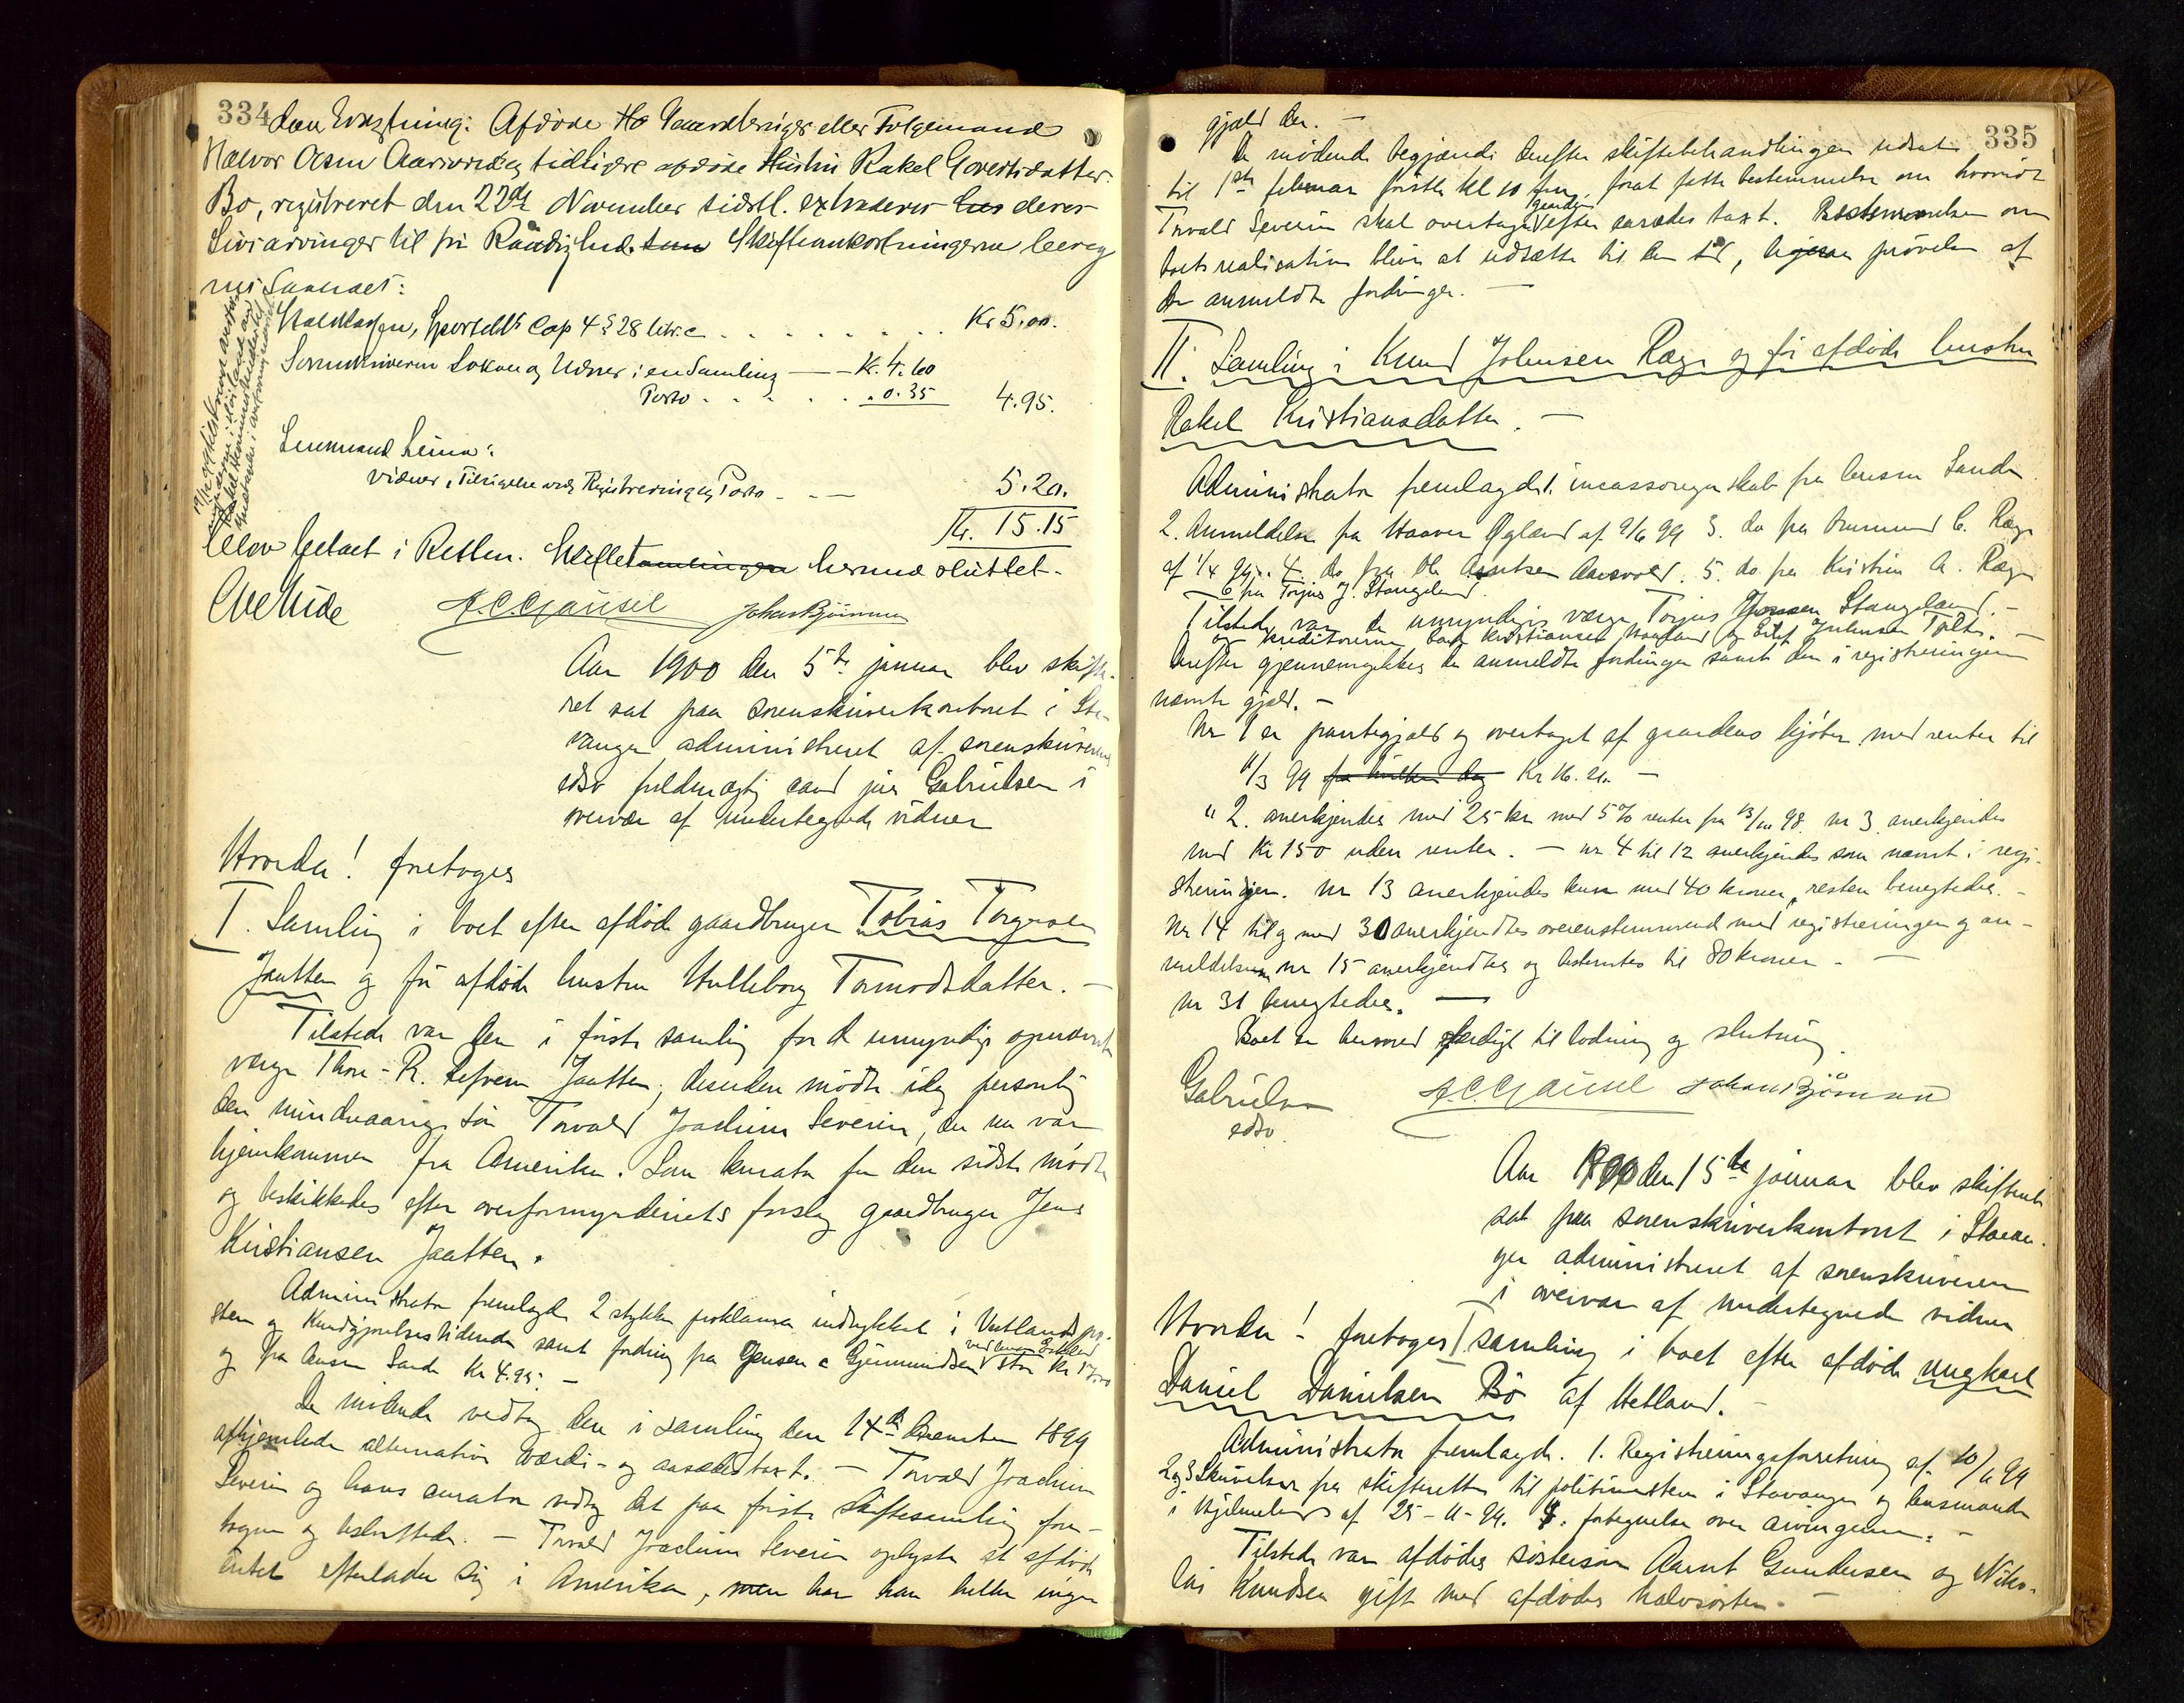 334
Afdøde Ho Gaardbruger eller Folgemand
Halvor Aasen tidligere afdøde Hustru Rakel Govertsdatter
Bo, registreret den 22de November sidstl. extraderes hus deres
Livsarvinger til fri Raadighed. Skifteomkostningerne bereg
nes saaledes:
Statskassen, Sportellv Cap 4 § 28 litr. c . . . . . . . Kr 5.00.
Sorenskriveren og Vidner i en Samling — Kr. 4.60
Porto . . . . . . 0.35 4.95.
Lensmand
Vidner, Tilsigelse ved Registrering og Porto - - — 5.20.
Kr. 15.15
i Retten. hermed sluttet.
A.C. Gausel Johan Bjørnsen
Aar 1900 den 5te januar blev skifte-
ret sat paa sorenskriverkontoret i Sta-
vanger administreret af sorenskriverens
edsv fuldmægtig cand jur Gabrielsen i
overvær af undertegnede vidner
Hvorda! foretoges
I. Samling i boet efter afdøde gaardbruger Tobias Torgersen
Jaatten og før afdøde hustru Hulleborg Tormodsdatter. —
Tilstede var den i første samling for de umyndige opnævnte
værge Thore R. Refvem Jaatten; desuden mødte idag personlig
den mindreaarige søn Torvald Joachim Severin, der nu var
hjemkommen fra Amerika. Som kurator for den sidste mødte
og beskikkedes efter overformynderiets forslag gaardbruger Jens
Kristiansen Jaatten.
Administrator fremlagde 2 stykker proklama indrykket i Vestlandspo-
sten og Kundgjørelsestidende samt fordring fra Jensen & Gjermundsen stor kr
og fra Lensm Sande Kr 4.95. —
De mødende vedtog den i samling den 14de december 1899
afhjemlede alternative værdi- og aasædestaxt. — Torvald Joachim
Severin og hans curator vedtog det paa første skiftesamling fore-
tagne og besluttede. — Torvald Joachim Severin oplyste at afdøde
intet efterlader sig i Amerika, men har han heller ingen
335
gjæld der. —
De mødende begjærede derefter skiftebehandlingen udsat
til 1ste februar førstk kl 10 fm, forat fatte bestemmelse om hvorvidt
gaarden
Torvald Severin skal overtage efter aasædes taxt. Bestemmelsen om
boets realisation bliver at udsætte til den tid, ligesaa prøvelsen af
de anmeldte fordringer. —
II. Samling i Knud Johnsen Røge og før afdøde hustru
Rakel Kristiansdatter. —
Administrator fremlagde 1. incassoregnskab fra lensm Sande
2. Anmeldelse fra Haaver Øgland af 9/6 99 3. do fra C. Røge
af 1/4 99. 4 do fra Ole Arntsen Aarsvold. 5. do fra Kristian A. Røge
6 fra Torjus J. Stangeland.
Tilstede var de umyndiges værge Torjus Jonassen Stangeland. —
og kreditorerne Kristiansen og Eilef Johnsen Tolte. —
Derefter gjennemgikkes de anmeldte fordringer samt den i registreringen
nævnte gjæld. —
Nr 1 er pantegjæld og overtaget af gaardens kjøber med renter til
11/3 99 fra hvilken dag Kr 16.20. —
" 2. anerkjendes med 25 kr med 5% renter fra 98. nr 3 anerkjendes
med Kr 150 uden renter. — nr 4 til 12 anerkjendes som nævnt i regi-
streringen. nr 13 anerkjendes kun med 40 kroner, resten benegtedes. —
Nr 14 til og med 30 anerkjendtes overensstemmende med registreringen og an-
meldelserne nr 15 anerkjendtes og bestemtes til 80 kroner. —
nr 31 benegtedes. —
Boet er hermed færdigt til lodning og slutning.
Gabrielsen A.C. Gausel Johan Bjørnsen
edsv.
Aar 1900 den 15de januar blev skifteret
sat paa sorenskriverkontoret i Stavan-
ger administreret af sorenskriveren
i overvær af undertegnede vidner
Hvorda! foretoges I samling i boet efter afdøde ungkarl
Daniel Danielsen Bø af Hetland. —
Administrator fremlagde. 1. Registreringsforretning af 10/11 99
2 og 3 Skrivelser fra skifteretten til politimesteren i Stavanger og lensmanden
i Hjelmeland af 25-11-99. 4. fortegnelse over arvingerne. —
Tilstede var afdødes søstersøn Aamt Gundersen og Niko-
lai Knudsen gift med afdødes halvsøster. —